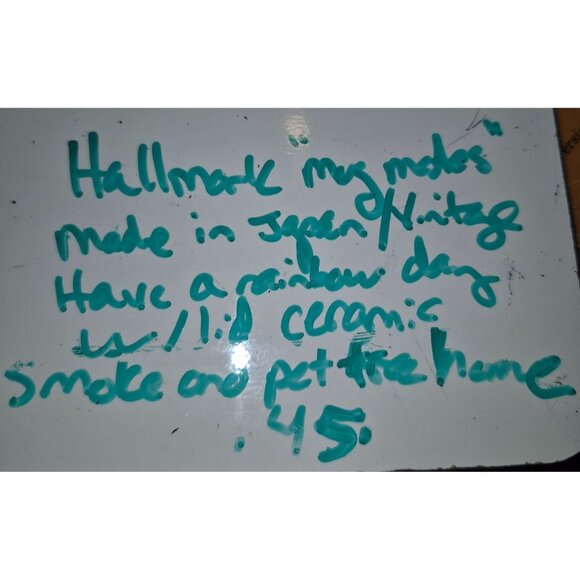 Hallmark "mug mates"
made in Japan/Vintage
Have a rainbow day
w/lid ceramic
Smoke and pet free home
.45.